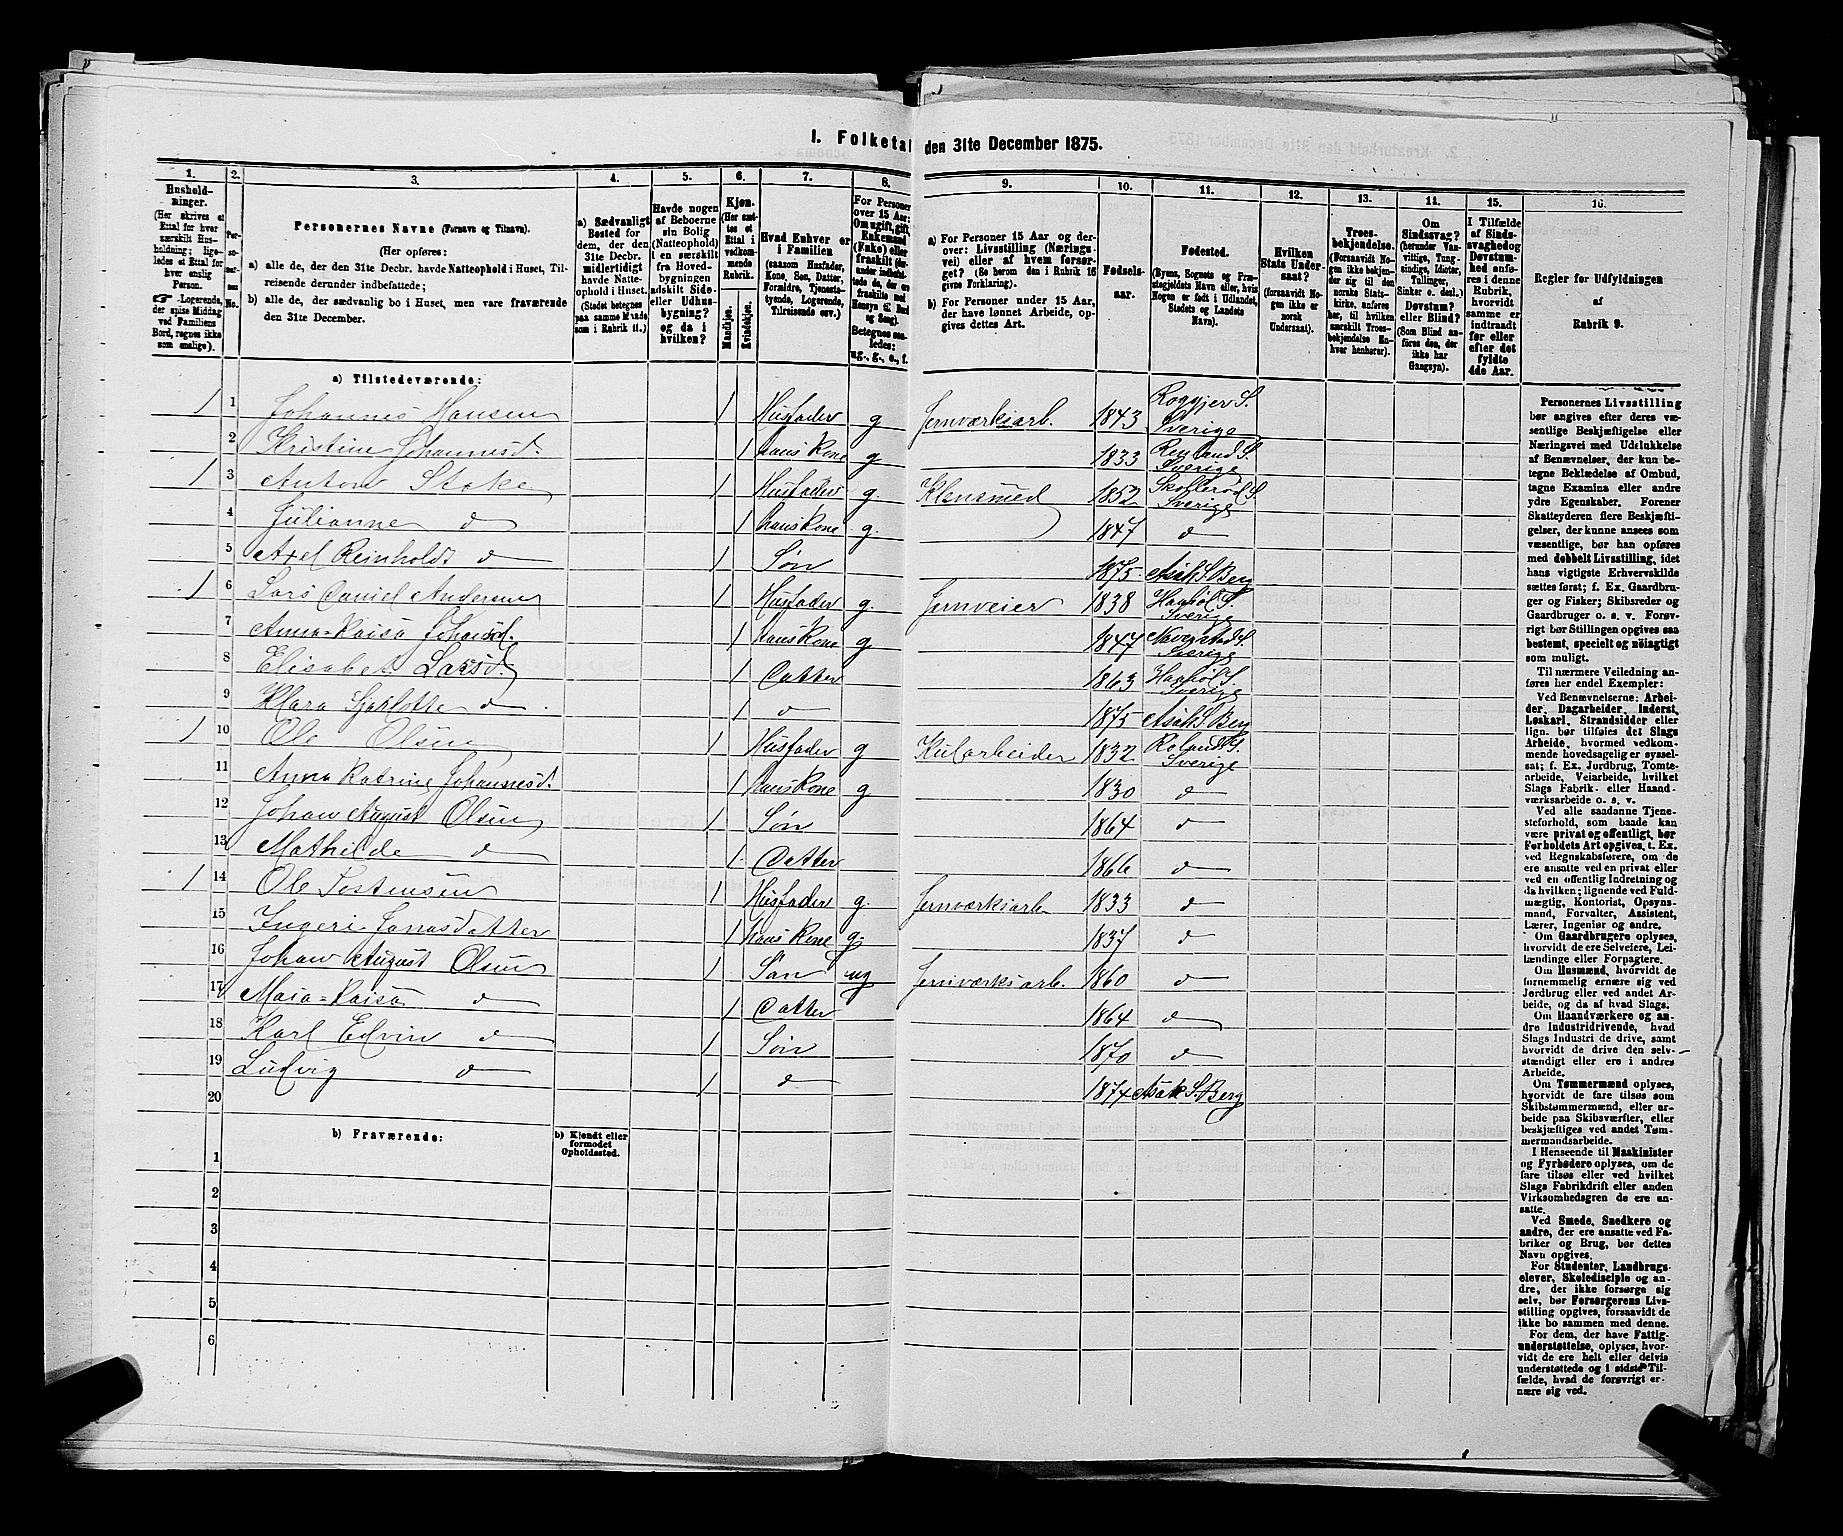 1. Folketal den 31te December 1875.
1. 2. 3. 4. 5. 6. 7. 8. 9. 10. 11. 12. 13. 14. 15. 16.
Hushold-
ninger.
(Her skrives et
Ettal for hver
særskilt Hus-
holdning; lige-
ledes et Ettal for
hver enslig
Person.
☞ Logerende,
der spise Middag
ved Familiens
Bord, regnes ikke
som enslige).
Per-
so-
ner-
nes
No.
Personernes Navne (Fornavn og Tilnavn).
(Her opføres:
a) alle de, der den 31te Decbr. havde Natteophold i Huset, Til-
reisende derunder indbefattede;
b) alle de, der sædvanlig bo i Huset, men vare fraværende
den 31te December.
a) Sædvanligt
Bosted for
dem, der den
31te Decbr.
midlertidigt
havde Natte-
ophold i Huset.
(Stedet betegnes
paa samme Maade
som i Rubrik 11.)
Havde nogen
af Beboerne
sin Bolig
(Natteophold)
i en særskilt
fra Hoved-
bygningen
adskilt Side-
eller Udhus-
bygning?
og da i
hvilken?
Kjøn.
(Her sæt-
tes et
Ettal i
vedkom-
mende
Rubrik.
Mandkjøn.
Kvindekjøn.
Hvad Enhver er
i Familien
(saasom Husfader,
Kone, Søn, Datter,
Forældre, Tjeneste-
tyende, Logerende,
Tilreisende osv.)
For Personer
over 15 Aar:
Om ugift, gift,
Enkemand
(Enke) eller
fraskilt
Betegnes saa-
ledes:
ug., g., e., f.
a) For Personer 15 Aar og der-
over: Livsstilling (Nærings-
vei) eller af hvem forsør-
get? (Se herom den i Rubrik 16
givne Forklaring).
b) For Personer under 15 Aar,
der have lønnet Arbeide, op-
gives dettes Art.
Fødsels-
aar.
Fødested.
(Byens, Sognets og Præ-
stegjeldets Navn eller, hvis
Nogen er født i Udlandet,
Stedets og Landets
Navn).
Hvilken
Stats Under-
saat?
(forsaavidt No-
gen ikke er
norsk
Undersaat).
Troes-
bekjendelse.
(Forsaavidt No-
gen ikke bekjen-
der sig til den
norske Stats-
kirke, anføres
her, til hvilken
særskilt Troes-
bekjendelse En-
hver henhører).
Om
Sindssvag?
(herunder Van-
vittige, Tung-
sindige, Idioter,
Tullinger,
Sinker o. desl.)
Døvstum?
eller Blind?
(Som Blind an-
føres den, der
ikke har
Gangsyn).
I Tilfælde
af Sinds-
svaghed og
Døvstum-
hed anfø-
res i denne
Rubrik,
hvorvidt
samme er
indtraadt
før eller
efter det
fyldte
4de Aar.
Regler for Udfyldningen
af
Rubrik 9.
a) Tilstedeværende:
1 1 Johannes Hansen 1 Husfader g Jernværksarb. 1843 Sverige
2 Kristine Johannesd. 1 hans Kone g 1833 Sverige
1 3 Anton Stake 1 Husfader g. Klensmed 1852 Skollerød S Sverige
4 Julianne d 1 hans Kone g. 1847 d
5 Axel Reinholdt d 1 Søn 1875 Asak S. Berg
1 6 Lars Daniel Andersen 1 Husfader g. Jernveier 1838 Sverige
7 Anna-Kaisa Johansd. 1 hans Kone g 1847 Naverstad S. Sverige
8 Elisabet Larsd. 1 Datter 1863 Sverige
9 Klara Sjarlotte d 1 d 1875 Asak S. Berg
1 10 Ole Olsen 1 Husfader g Kularbeider 1832 Roland S. Sverige
11 Anna Katrine Johannesd. 1 hans Kone g 1830 d
12 Johan August Olsen 1 Søn 1864 d
13 Mathilde d 1 Datter 1866 d
1 14 Ole Tostensen 1 Husfader g. Jernværksarb. 1833 d
15 Ingeri Jonasdatter 1 hans Kone g. 1837 d
16 Johan August Olsen 1 Søn ug Jernværksarb. 1860 d
17 Maia-Kaisa d 1 Datter 1864 d
18 Karl Edvin d 1 Søn 1870 d
19 Ludvig d 1 d 1874 Asak S. Berg
20
b) Fraværende:
b) Kjendt eller
formodet
Opholdssted.
1
2
3
4
5
6
Personernes Livsstilling
bør angives efter deres væ-
sentlige Beskjæftigelse eller
Næringsvei med Udelukkelse
af Benævnelser, der kun be-
tegne Beklædelse af Ombud,
tagne Examina eller andre
ydre Egenskaber. Forener
Skatteyderen flere Beskjæfti-
gelser, der kunne ansees som
væsentlige, bør han opføres
med dobbelt Livsstilling, idet
hans vigtigste Erhvervskilde
sættes først; f. Ex. Gaardbru-
ger og Fisker; Skibsreder og
Gaardbruger o. s. v. Forøv-
rigt bør Stillingen opgives saa
bestemt, specielt og nöiagtigt
som muligt.
Til nærmere Veiledning an-
føres her endel Exempler:
Ved Benævnelserne: Arbei-
der, Dagarbeider, Inderst,
Løskarl, Strandsidder eller
lign. bør tilføies det Slags
Arbeide, hvormed vedkom-
mende hovedsagelig er syssel-
sat; f. Ex. Jordbrug, Tomte-
arbeide, Veiarbeide, hvilket
Slags Fabrik- eller Haand-
værksarbeide o. s. v.
Ved alle saadanne Tjene-
steforhold, som baade kan
være privat og offentligt, bør
Forholdets Art opgives, t. Ex.
ved Regnskabsførere, om de
ere ansatte ved en privat eller
ved en offentlig Indretning og
da hvilken; lignende ved Fuld-
mægtig, Kontorist, Opsyns-
mand, Forvalter, Assistent,
Lærer, Ingeniør og andre.
Om Gaardbrugere oplyses,
hvorvidt de ere Selveiere, Lei-
lændinge eller Forpagtere.
Om Husmænd, hvorvidt de
fornemmelig ernære sig ved
Jordbrug eller ved andet Ar-
beide, og da af hvad Slags.
Om Haandværkere og an-
dre Industridrivende, hvad
Slags Industri de drive, samt
hvorvidt de drive den selv-
stændigt eller ere i andres
Arbeide.
Om Tømmermænd oplyses,
hvorvidt de fare tilsøs som
Skibstømmermænd, eller ar-
beide paa Skibsværfter, eller
beskjæftiges ved andet Tøm-
mermandsarbeide.
I Henseende til Maskinister
og Fyrbødere oplyses, om de
fare tilsøs eller ved hvilket
Slags Fabrikdrift eller anden
Virksomhedsgren de ere an-
satte.
Ved Smede, Snedkere og
andre, der ere ansatte ved Fa-
briker og Brug, bør dettes
Navn opgives.
For Studenter, Landbrugs-
elever, Skoledisciple og an-
dre, der ikke forsørge sig
selv, bør Forsørgerens Livs-
stilling opgives, forsaavidt de
ikke bo sammen med denne.
For dem, der have Fattig-
understøttelse, oplyses, hvor-
vidt de ere helt eller delvis
understøttede og i sidste Til-
fælde, hvad de forøvrigt er-
nære sig ved.